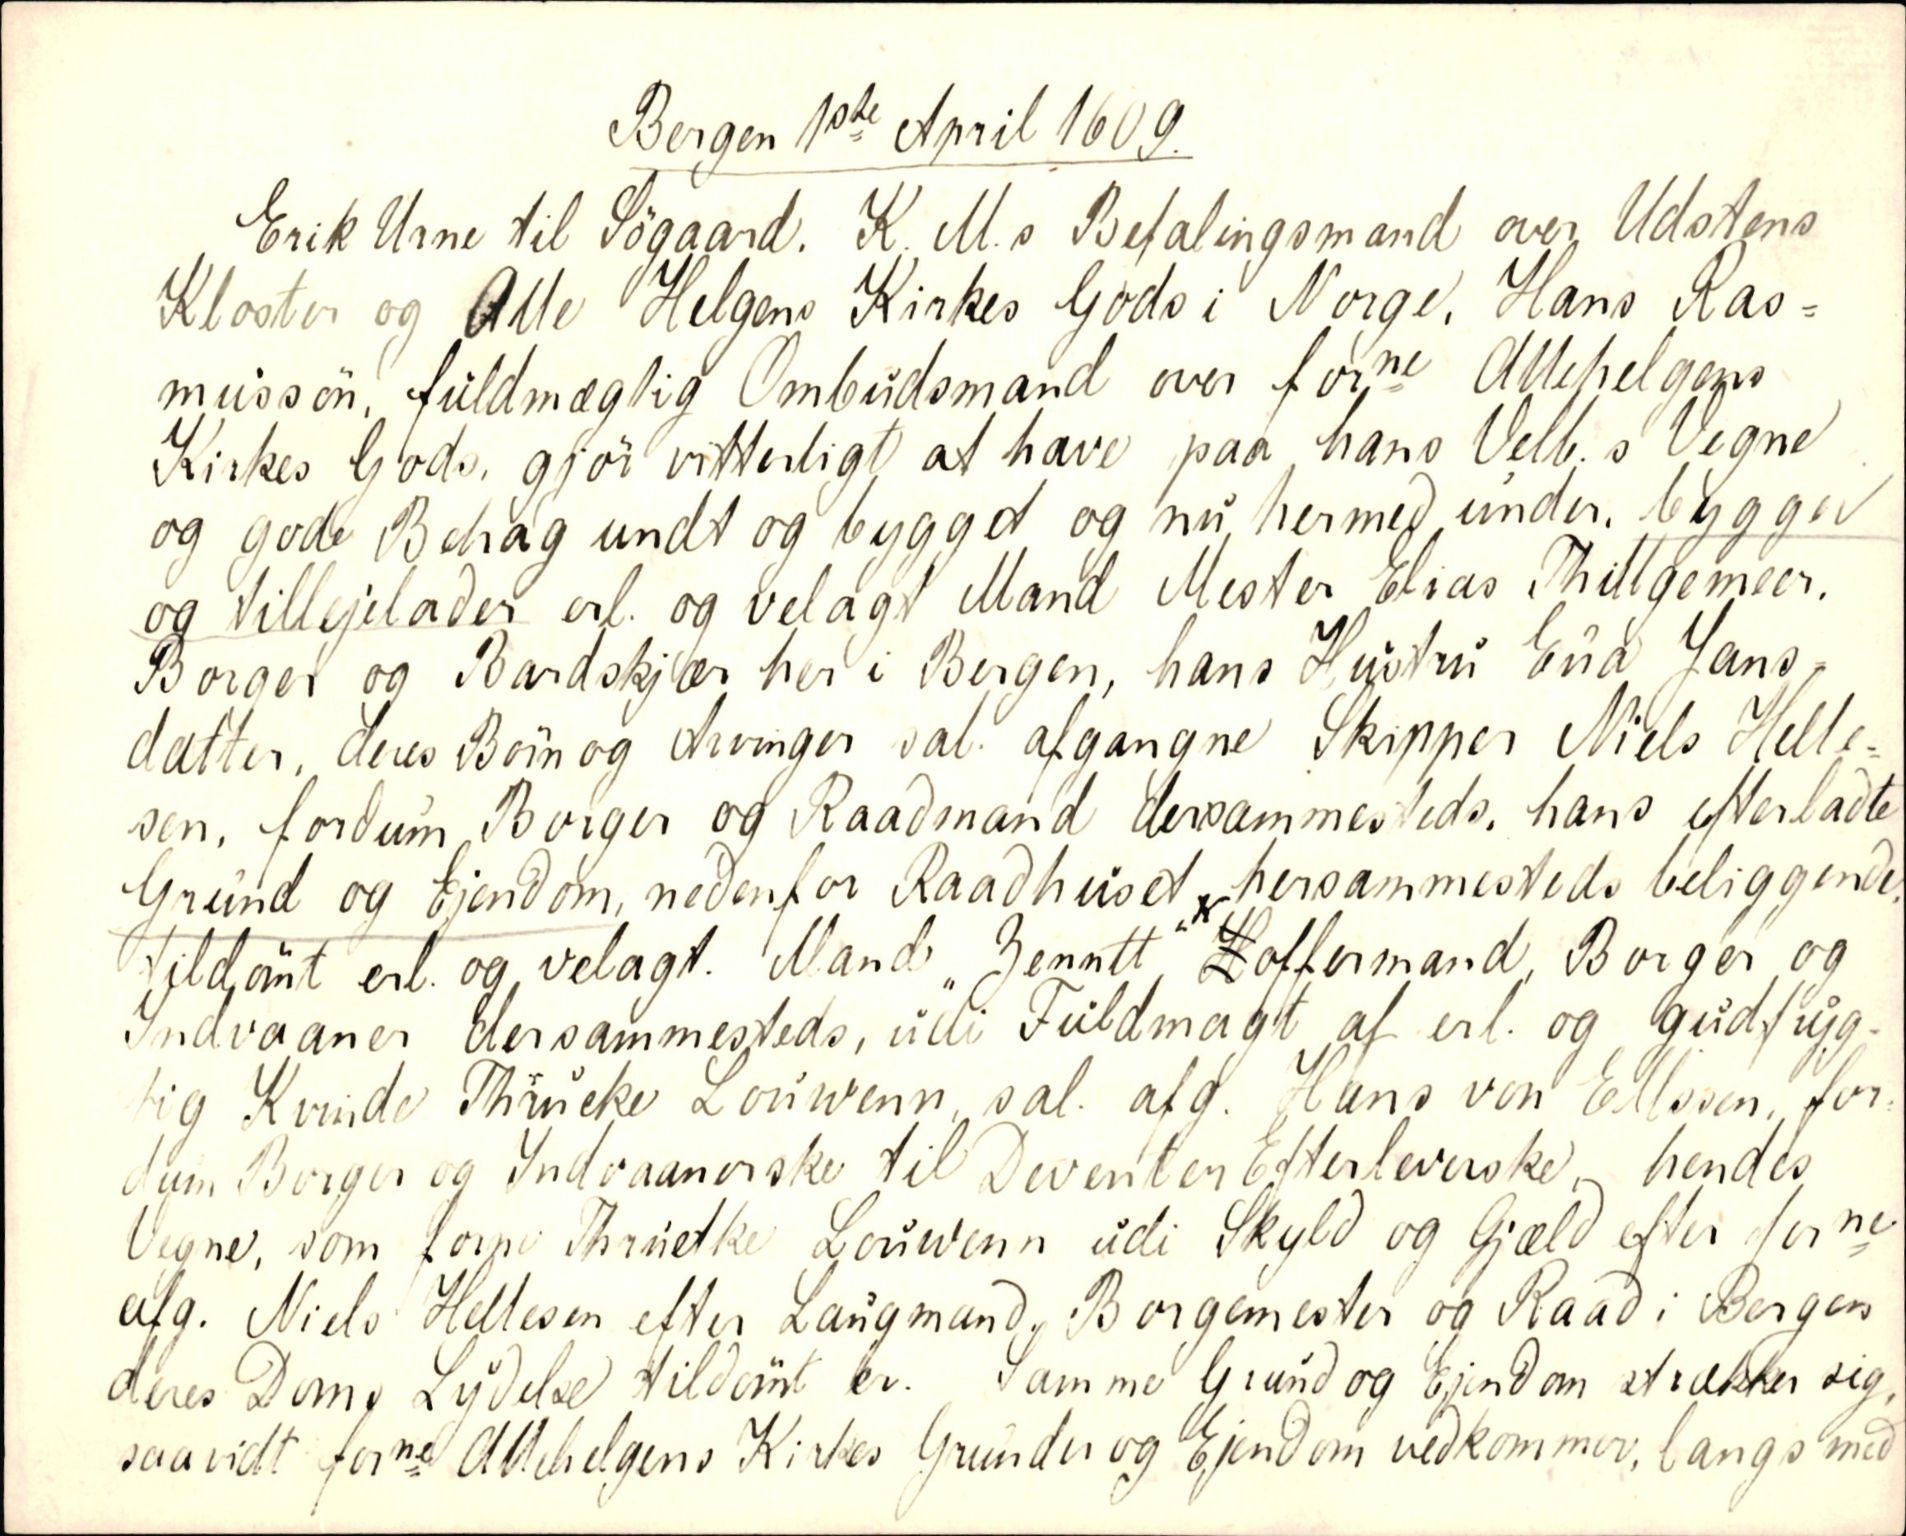 Bergen 1ste April 1609.
Erik Urne til Sögaard. K. M.s Befalingsmand over Udstens
Kloster og Alle Helgens Kirkes Gods i Norge, Hans Ras=
mussön, fuldmægtig Ombudsmand over forne Allehelgens
Kirkes Gods, gjör vitterligt at have paa hans Velb.s Vegne
og gode Behag undt og bygget og nu hermed under, bygger
og tillejelader erl. og velagt Mand Mester Elias Thillgemeer,
Borger og Bardskjær her i Bergen, hans Hustru Eua Jans=
datter, deres Börn og Arvinger sal. afgangne Skipper Niels Helle=
sen, fordum Borger og Raadmand dersammesteds, hans efterladte
Grund og Ejendom, nedenfor Raadhuset hersammesteds beliggende,
tildömt erl. og velagt. Mand „Zenntt"x Hoffermand, Borger og
Indvaaner dersammesteds, udi Fuldmagt af erl. og gudfryg-
tig Kvinde Thrucke Louwenn, sal. afg. Hans von Ellssen, for=
dum Borger og Indvaanerske til Deventer Efterleverske, hendes
Vegne, som forne Thruetke Louwenn udi Skyld og Gjæld efter forne
afg. Niels Hellesen efter Laugmand, Borgemester og Raad i Bergens
deres Doms Lydelse tildömt er. Samme Grund og Ejendom strækker sig,
saavidt forne Allehelgens Kirkes Grunder og Ejendom vedkommer, langs med